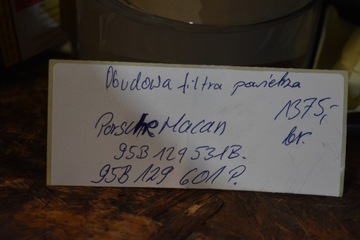 Obudowa filtra powietrza
1375,-
Porsche Macan br.
95B 129 531B.
95B 129 601 P.